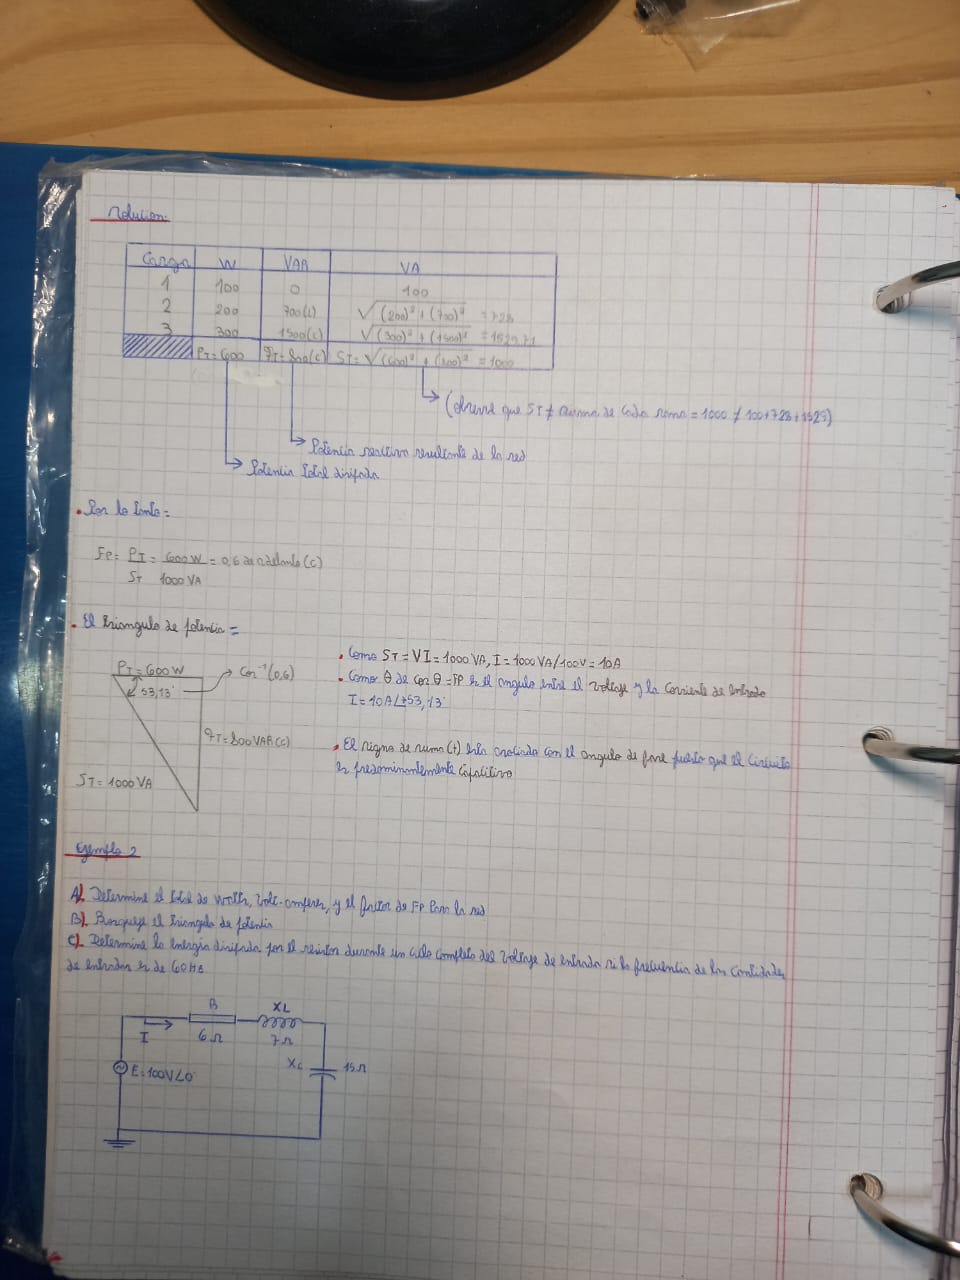 Solucion:
Carga W VAR VA
1 100 0 100
2 200 700(L) √(200)² + (700)² = 728
3 300 1500(C) √(300)² + (1500)² = 1529,71
PT = 600 qT = 800(C) ST = √(600)² + (800)² = 1000
(observe que ST ≠ suma de cada rama = 1000 ≠ 100+728+1529)
Potencia reactiva resultante de la red
Potencia total disipada
• Por lo tanto =
FP = PT/ST = 600 W/1000 VA = 0,6 de adelanto (C)
• El triangulo de potencia =
PT = 600 W
Cos⁻¹ (0,6)
53,13°
qT = 800 VAR (C)
ST = 1000 VA
• Como ST = VI = 1000 VA, I = 1000 VA/100V = 10A
• Como θ de cos θ = FP es el angulo entre el voltaje y la corriente de entrada
I = 10A ∠+53,13°
• El signo de suma (+) esta asociado con el angulo de fase puesto que el circuito
es predominantemente capacitivo
Ejemplo 2
A). Determine el total de watts, volt-amperes, y el factor de FP para la red
B). Bosqueje el triangulo de potencia
C). Determine la energia disipada por el resistor durante un ciclo completo del voltaje de entrada si la frecuencia de las cantidades
de entradas es de 60Hz
R
XL
I
6 Ω
7 Ω
XC
15 Ω
E = 100V∠0°